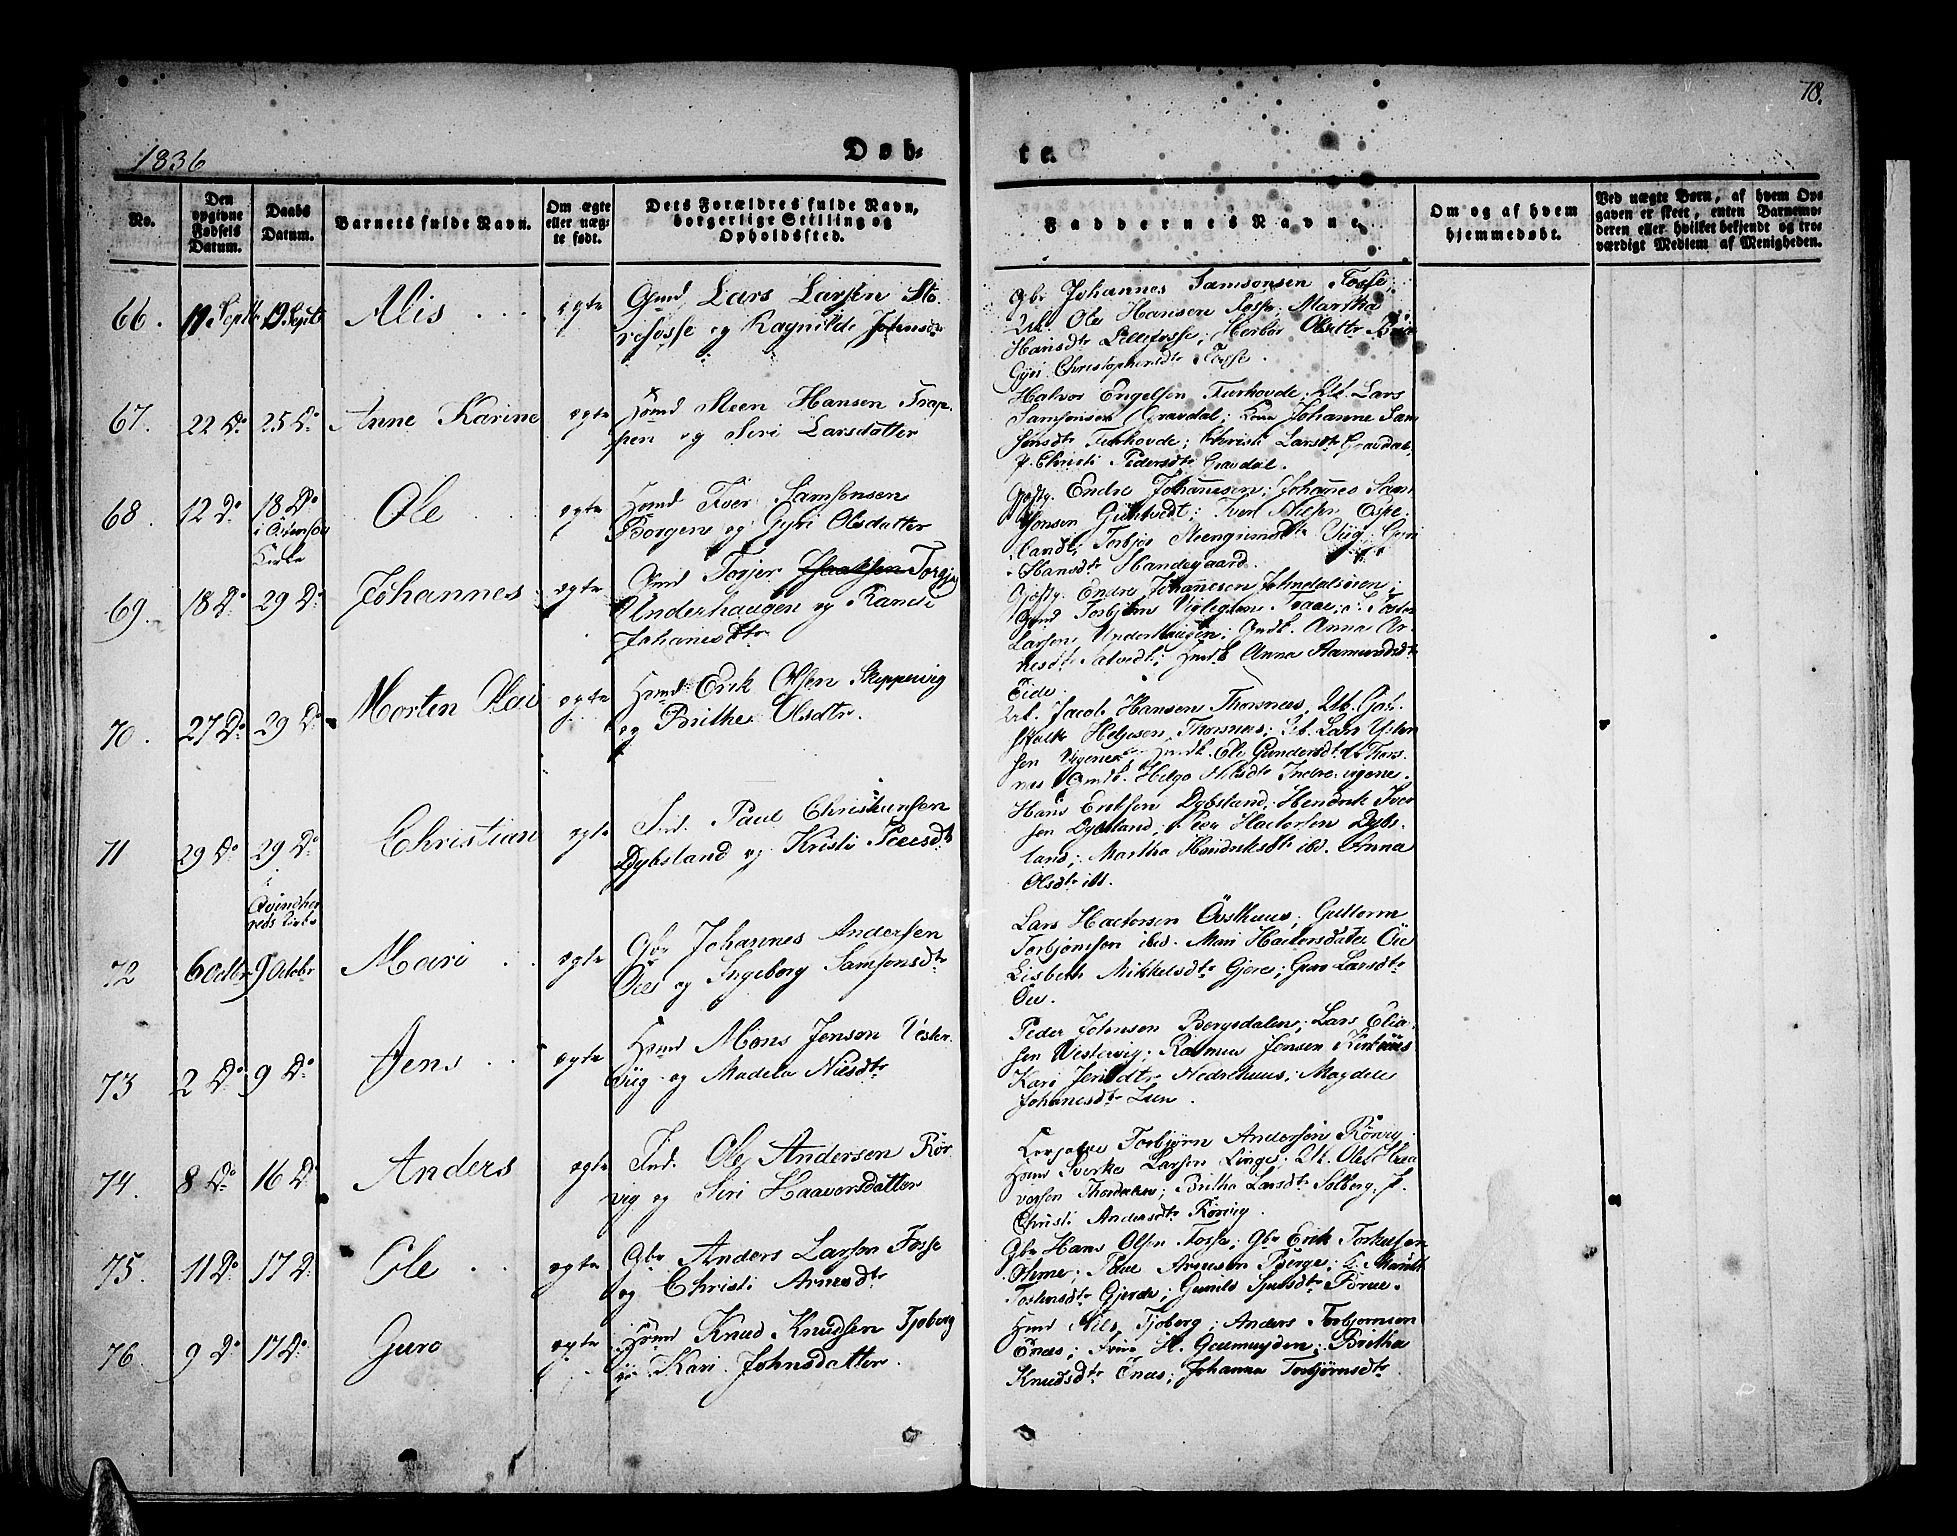 78.
1836
Døb-
te.
No.
Den opgivne Fødsels Datum.
Daabs Datum.
Barnets fulde Navn.
Om ægte eller uægte født.
Dets Forældres fulde Navn, borgerlige Stilling og Opholdssted.
Faddernes Navne.
Om og af hvem hjemmedøbt.
Ved uægte Børn, af hvem Opgaven er skeet, enten Barnemoderen eller hvilket bekjendt og troværdigt Medlem af Menigheden.
66. 11 Septb 19 Septb Alis ægte
Gmd Lars Larsen Sto-
refosse og Ragnilde Johnsdtr
Gbr Johannes Samsonsen Fosse;
Ole Hansen Fosse; Martha
Hansdtr Lillefosse; Herbor Olsdtr
Gyri Christophersdtr Fosse.
67. 22 Do 25 Do Anne Karine ægte
Hmd Steen Hansen Trap-
pen og Siri Larsdatter
Halvor Engelsen Turhovde; Uk. Lars
Samsonsen Gravdal; Kone Johanne Sam-
sonsdtr Turhovde; Christi Larsdtr Gravdal,
p. Christi Pedersdtr Gravdal.
68. 12 Do 18 Do Ole ægte
Kirke
Hmd Iver Samsonsen
Borgen og Gyri Olsdatter
Endre Johannesen; Johanes Sam-
sonsen
landt; Steengrimsdtr Viig; Guri
Hansdtr Handegaard.
69. 18 Do 29 Do Johannes ægte
Gmd Torjer Torgj
Underhaugen og Randi
Johanesdtr
Endre Johannesen
Gmd Torbjørn
Larsen Underhaugen; Anna Ar-
nesdtr; Anna Aamundsdtr
Eide.
70. 27 Do 29 Do Morten ægte
Hmd Erik Olsen Skeppevig
og Brithe Olsdtr.
Uk. Jacob Hansen Thorsnes, Uk. Got-
skalk Helgesen Thorsnes; Lars
sen Gundersdtr Thors-
nes Helga Nilsdtr Indre
71 29 Do 29 Do Christian ægte
Ind. Paul Christiansen
Dybsland og Kristi Peersdtr
Hans Eriksen Dybsland; Hendrik Iver-
sen Dybsland; Peder Dybs-
land; Martha Hendriksdtr ibd. Anna
Olsdtr ibd.
i Qvindher-
reds Kirke
72 6 Octbr 9 Octobr Mari ægte
Gbr Johannes Andersen
Øie og Ingeborg Samsonsdtr
Lars Østhuus; Guttorm
Torbjørnsen ibd. Øie
Lisbeth Mikkelsdtr Gjere; Guro Larsdtr
Øie.
73 2 Do 9 Do Jens ægte
Hmd Mons Jensen Vester-
viig og Madela Nilsdtr
Peder Johnsen Borgedalen; Lars Elia-
sen Vesterviig; Rasmus Jensen
Kari Jensdtr Nedrehuus; Magdele
Johanesdtr Lien.
74. 8 Do 16 Do Anders ægte
Ind. Ole Andersen Rør-
vig og Siri Haaversdatter
Torbjørn Andersen Rørvig
Hmd Sverke Larsen Linge; Uk. Ole Haa-
versen; Britha Larsdtr Solberg, p.
Christi Andersdtr Rørvig.
75. 11 Do 17 Do Ole ægte
Gbr Anders Larsen Fosse
og Christi Arnesdtr
Gbr Hans Olsen Fosse; Gbr Erik Torkelsen
Paul Arnesen Berge;
Gjerde; Gunild Sjursdtr
76. 9 Do 17 Do Guro ægte
Hmd Knud Knudsen Tjoberg
og Kari Johnsdatter.
Hmd Nils Tjoberg; Anders Torbjørnsen
Enæs; H. Britha
Knudsdtr Enæs; Johanna Torbjørnsdtr